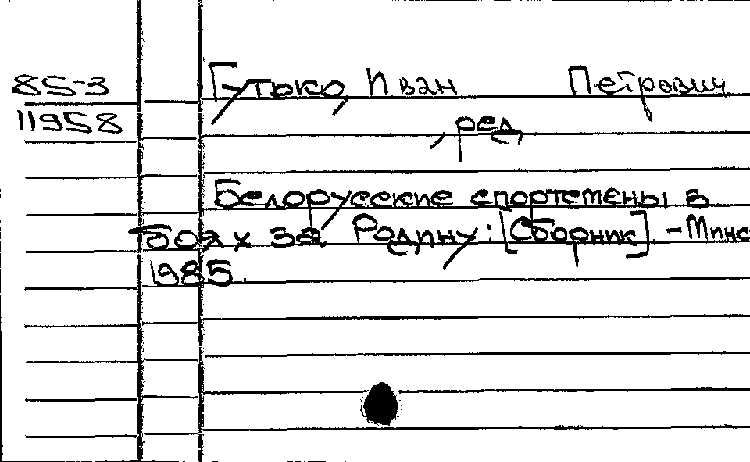 85-3 Гутько, Иван Петрович
11958 , ред.
Белорусские спортсмены в
боях за Родину: [Сборник] - Минс
1985.